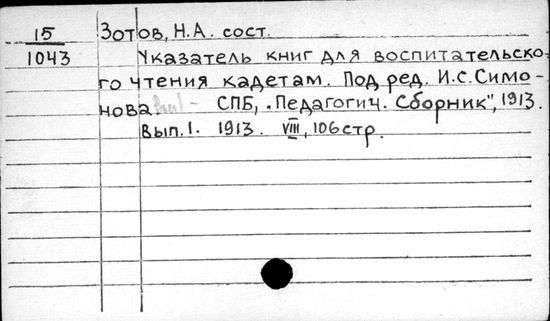 15 Зотов, Н.А. сост.
1043 Указатель книг для воспитательско-
го чтения кадетам. Под ред. И.С. Симо-
нова. - СПБ, „Педагогич. Сборник", 1913.
Вып. 1. 1913. VIII, 106 стр.